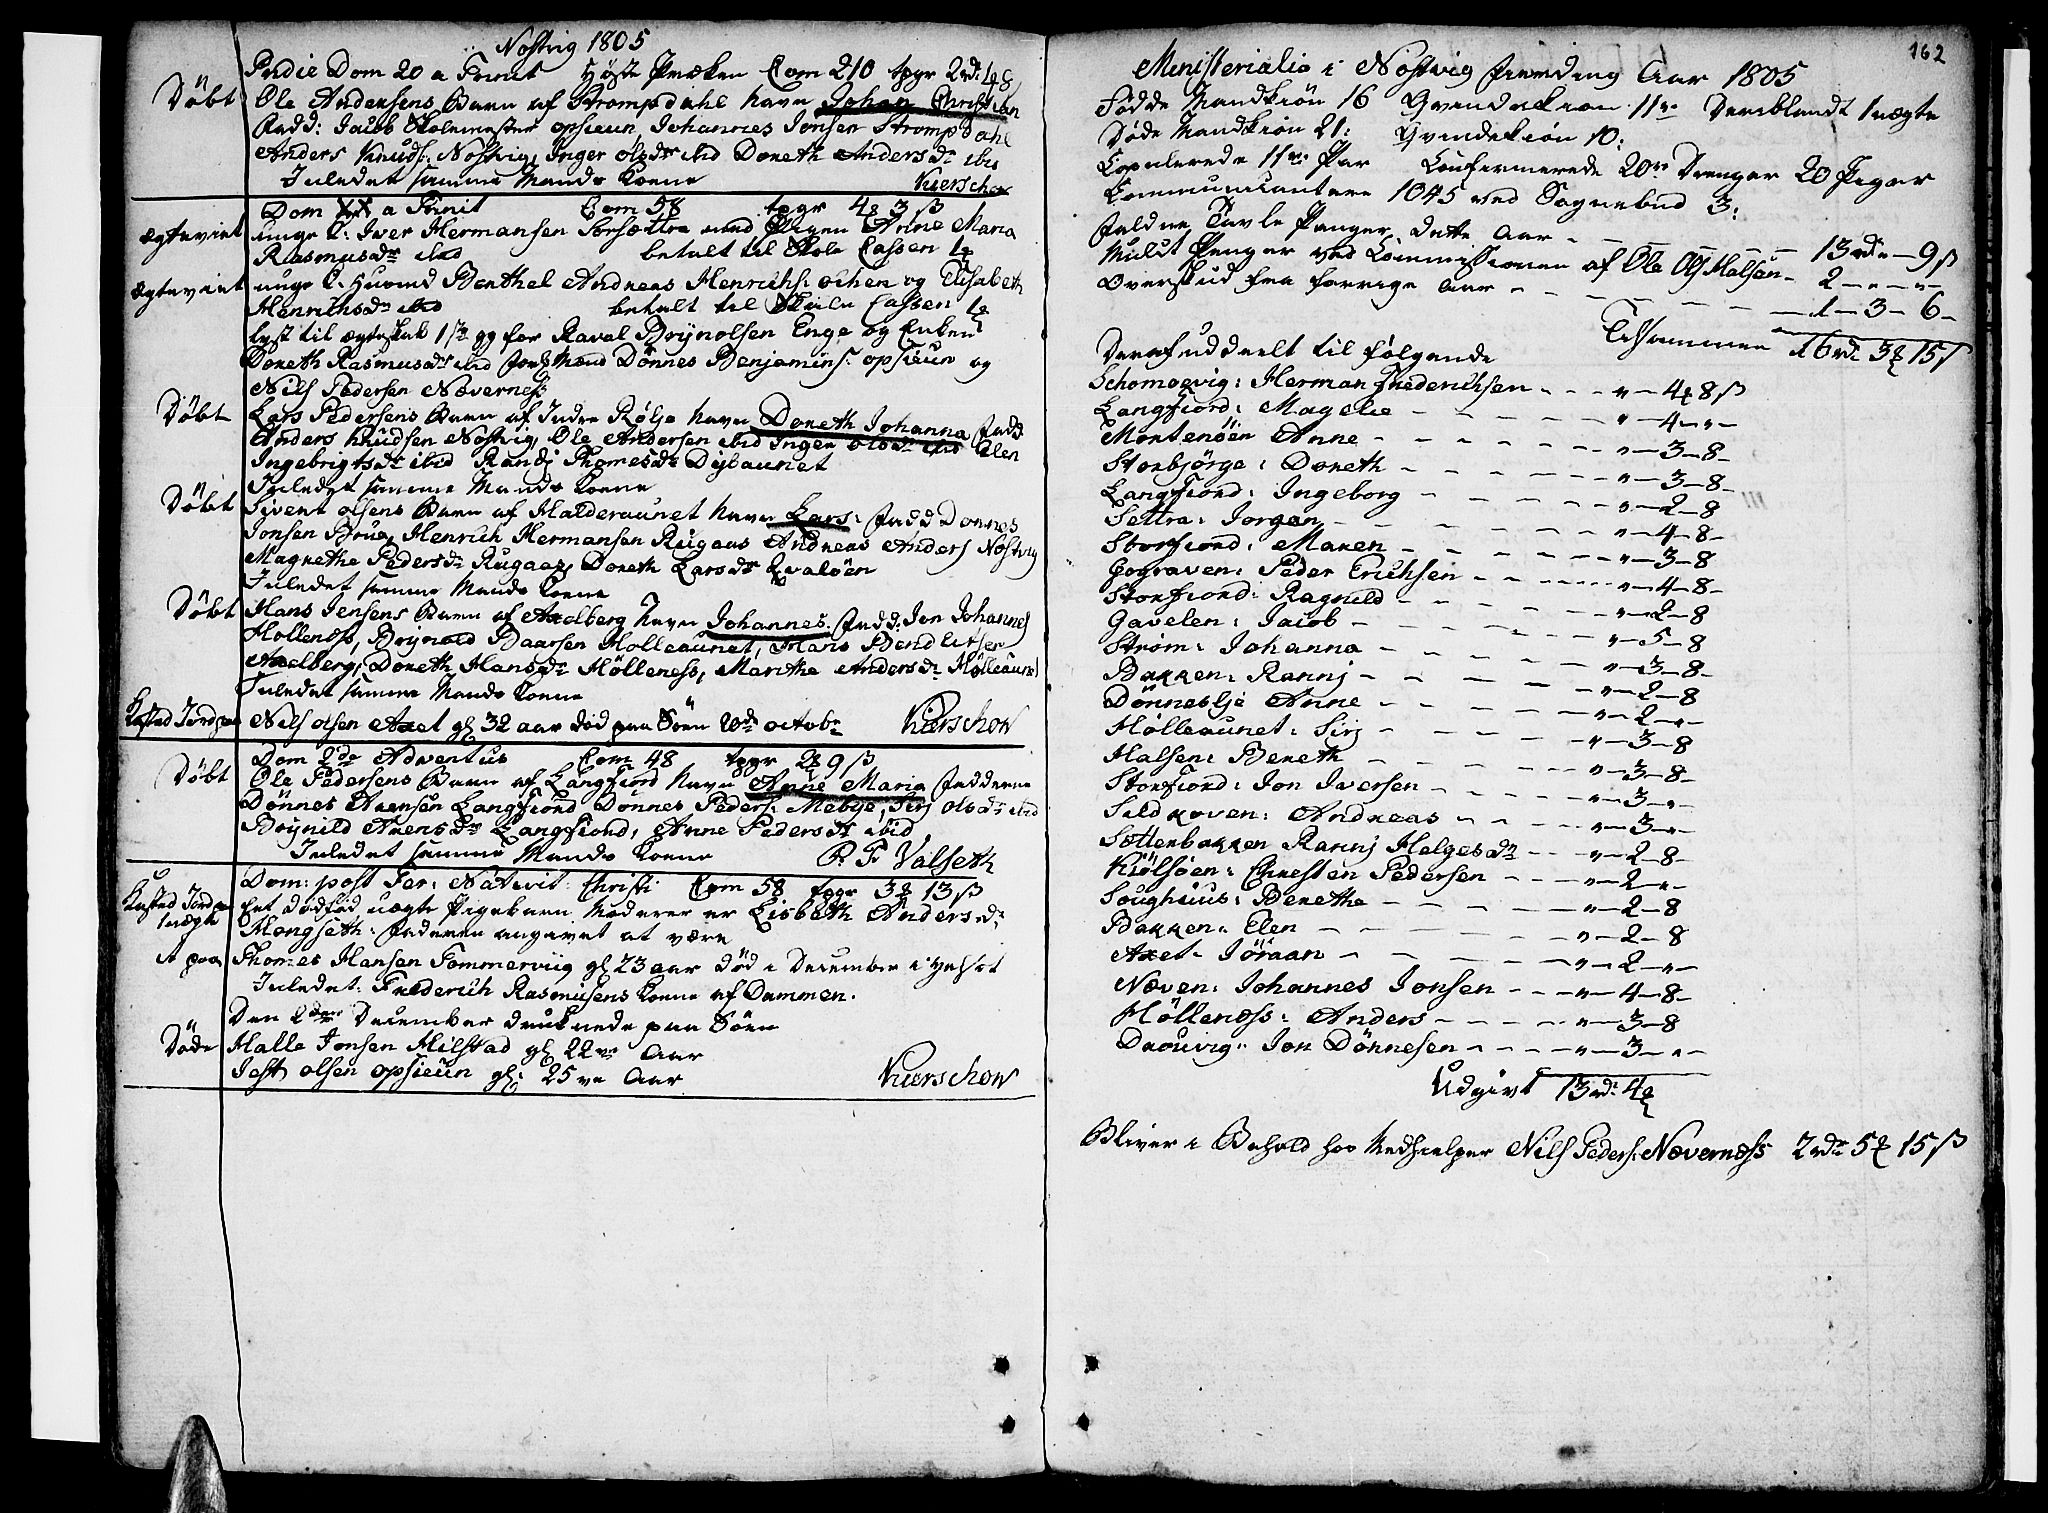 Nostvig 1805
Pridie Dom 20 a Trinit Høste Præken Com 210 tpgr 2rd:
Døbt Ole Andersens Barn af Strompdahl kavn Johan Christian
Fadd: Jacob Skolemester opsieun, Johannes Jonsen Strompdahl
Anders Knuds: Nostvig, Inger olsdr ibid Doreth Andersdr ibid
Inledet samme Mands Kone Kierschow
Dom XX a Trinit Com 58 tpgr 4 3 ß
ægteviet unge C: Iver Hermansen Torsættra med Pigen Anne Maria
Rasmusdr ibid betalt til Skole Cassen
ægteviet unge C. Huusmd Benthel Andreas Henrichs: ochen og Elisabeth
Henrichsdr ibid betalt til Skole Cassen
lyst til ægteskab 1ste gg for Raval Brÿnolsen Enge og Enken
Doreth Rasmusdr ibid forl Mænd Dönnes Benjamins: opsieun og
Nils Pedersen Næverness
Døbt Lars Pedersens Barn af Indre Rølje kavn Doreth Johanna Fadd
Anders Knudsen Nostvig, Ole Andersen ibid Inger olsdr ibid Elen
Ingebrigtsdr ibid Randj Thomesdr Digtaunet
Inledet samme Mands Kone
Døbt Sivert olsens Barn af Halderaunet kavn Lars: Fadd Donnes
Jonsen Brue, Henrich Hermansen Rugaas Andreas Anders Nostvig
Magrethe Pedersdr Rugaas, Doreth Larsdr Qvaløen
Inledet samme Mands Kone
Døbt Hans Jensens Barn af Axelberg kavn Johannes. Fadd: Jon Johannes
Holleness, Brynild Baarsen Holleaunet, Hans Bendictsen
Axelberg, Doreth Hansdr Hölleness, Marithe Andersdr Hølleaunet
Inledet samme Mands Kone
Kasted Jord paa Nils olsen Axet gl 32 aar død paa Søen 20de octobr Kierschow
Dom 2de Adventus Com 48 tpgr 2 9 ß
Døbt Ole Pedersens Barn af Langfiord kavn Anne Maria Fadderne
Dönnes Arensen Langfiord Dönnes Peders: Mebye, Sirj olsdr ibid
Brynild Arensdr Langfiord, Anne Pedersdr ibid
Inledet samme Mands Kone P. F Valseth
Dom: post Fer: Nativit: Christi Com 58 tpgr 3 13 ß
Kasted Jord paa et dødfød uægte Pigebarn, Moderen er Lisbeth Andersdr
1uægte Mongseth: Faderen angivet at være
it paa Thomes Hansen Tommerviig gl 23 aar død i December i
Inledet: Frederich Rasmusens Kone af Dammen.
Den 2den December druknede paa Søen
Døde Halle Jonsen Hilstad gl 22ve Aar
Jost olsen opsieun gl: 25ve Aar Kierschow
162
Ministerialia i Nostvig fierding Aar 1805
Fødde Mandkiøn 16 Qvindekiøn 11ve Deriblandt 1uægte
Døde Mandkiøn 21: Qvindekiøn 10:
Copulerede 11ve Par Confirmerede 20ve Drenger 20 Piger
Communicantere 1045 ved Sognebud 3:
Faldne Tavle Penger dette Aar - - - - - - 13 rd - " - 9 ß
Mulct Penger ved Commissionen af Ole Ols Halsen - 2 - " - " -
Overskud fra forrige Aar - - - - - - - 1 - 3 - 6 -
Tilsammen 16 rd: 3 15 ß
Deraf uddeelt til følgende
Schomagvig: Herman Frederichsen - - - " - 4 8 ß
Langfiord: Magelie - - - - - " - 4 - " -
Mortenöen Anne - - - - - - " - 3 - 8 -
Storbjörge: Doreth - - - - - " - 3 - 8 -
Langfiord: Ingeborg - - - - - " - 2 - 8
Settra: Jorgen - - - - - - " - 4 - 8 -
Storfiord: Maren - - - - - " - 3 - 8
Gograven: Peder Erichsen - - - - " - 4 - 8 -
Storfiord: Ragnild - - - - - " - 2 - 8
Gavelen: Jacob - - - - - - " - 5 - 8
Strøm: Johanna - - - - - - " - 3 - 8 -
Bakken: Rannj - - - - - - " - 2 - 8
Dönneslje Anne - - - - - " - 2 - " -
Hølleaunet: Sirj - - - - - " - 3 - 8
Halsen: Bereth - - - - - - " - 3 - 8 -
Storfiord: Jon Iversen - - - - " - 3 - " -
Sildroven: Andreas - - - - " - 3 - " -
Sætterbakken Rannj Helgesdr - - " - 2 - 8 -
Kiölsöen: Christen Pedersen - - - " - 2 - " -
Soughuus: Berethe - - - - - " - 2 - 8
Bakken: Elen - - - - - - " - 2 - 8
Axet - Jöraan - - - - - - " - 2 - " -
Næven: Johannes Jonsen - - - " - 4 - 8 -
Hölleness: Anders - - - - - " - 3 - 8
Draavig: Jon Dönnesen - - - - " - 3 - " -
Udgivt 13 rd: 4
Bliver i Behold hos Medhielper Nils Peders: Næverness 2 rdr 5 15 ß